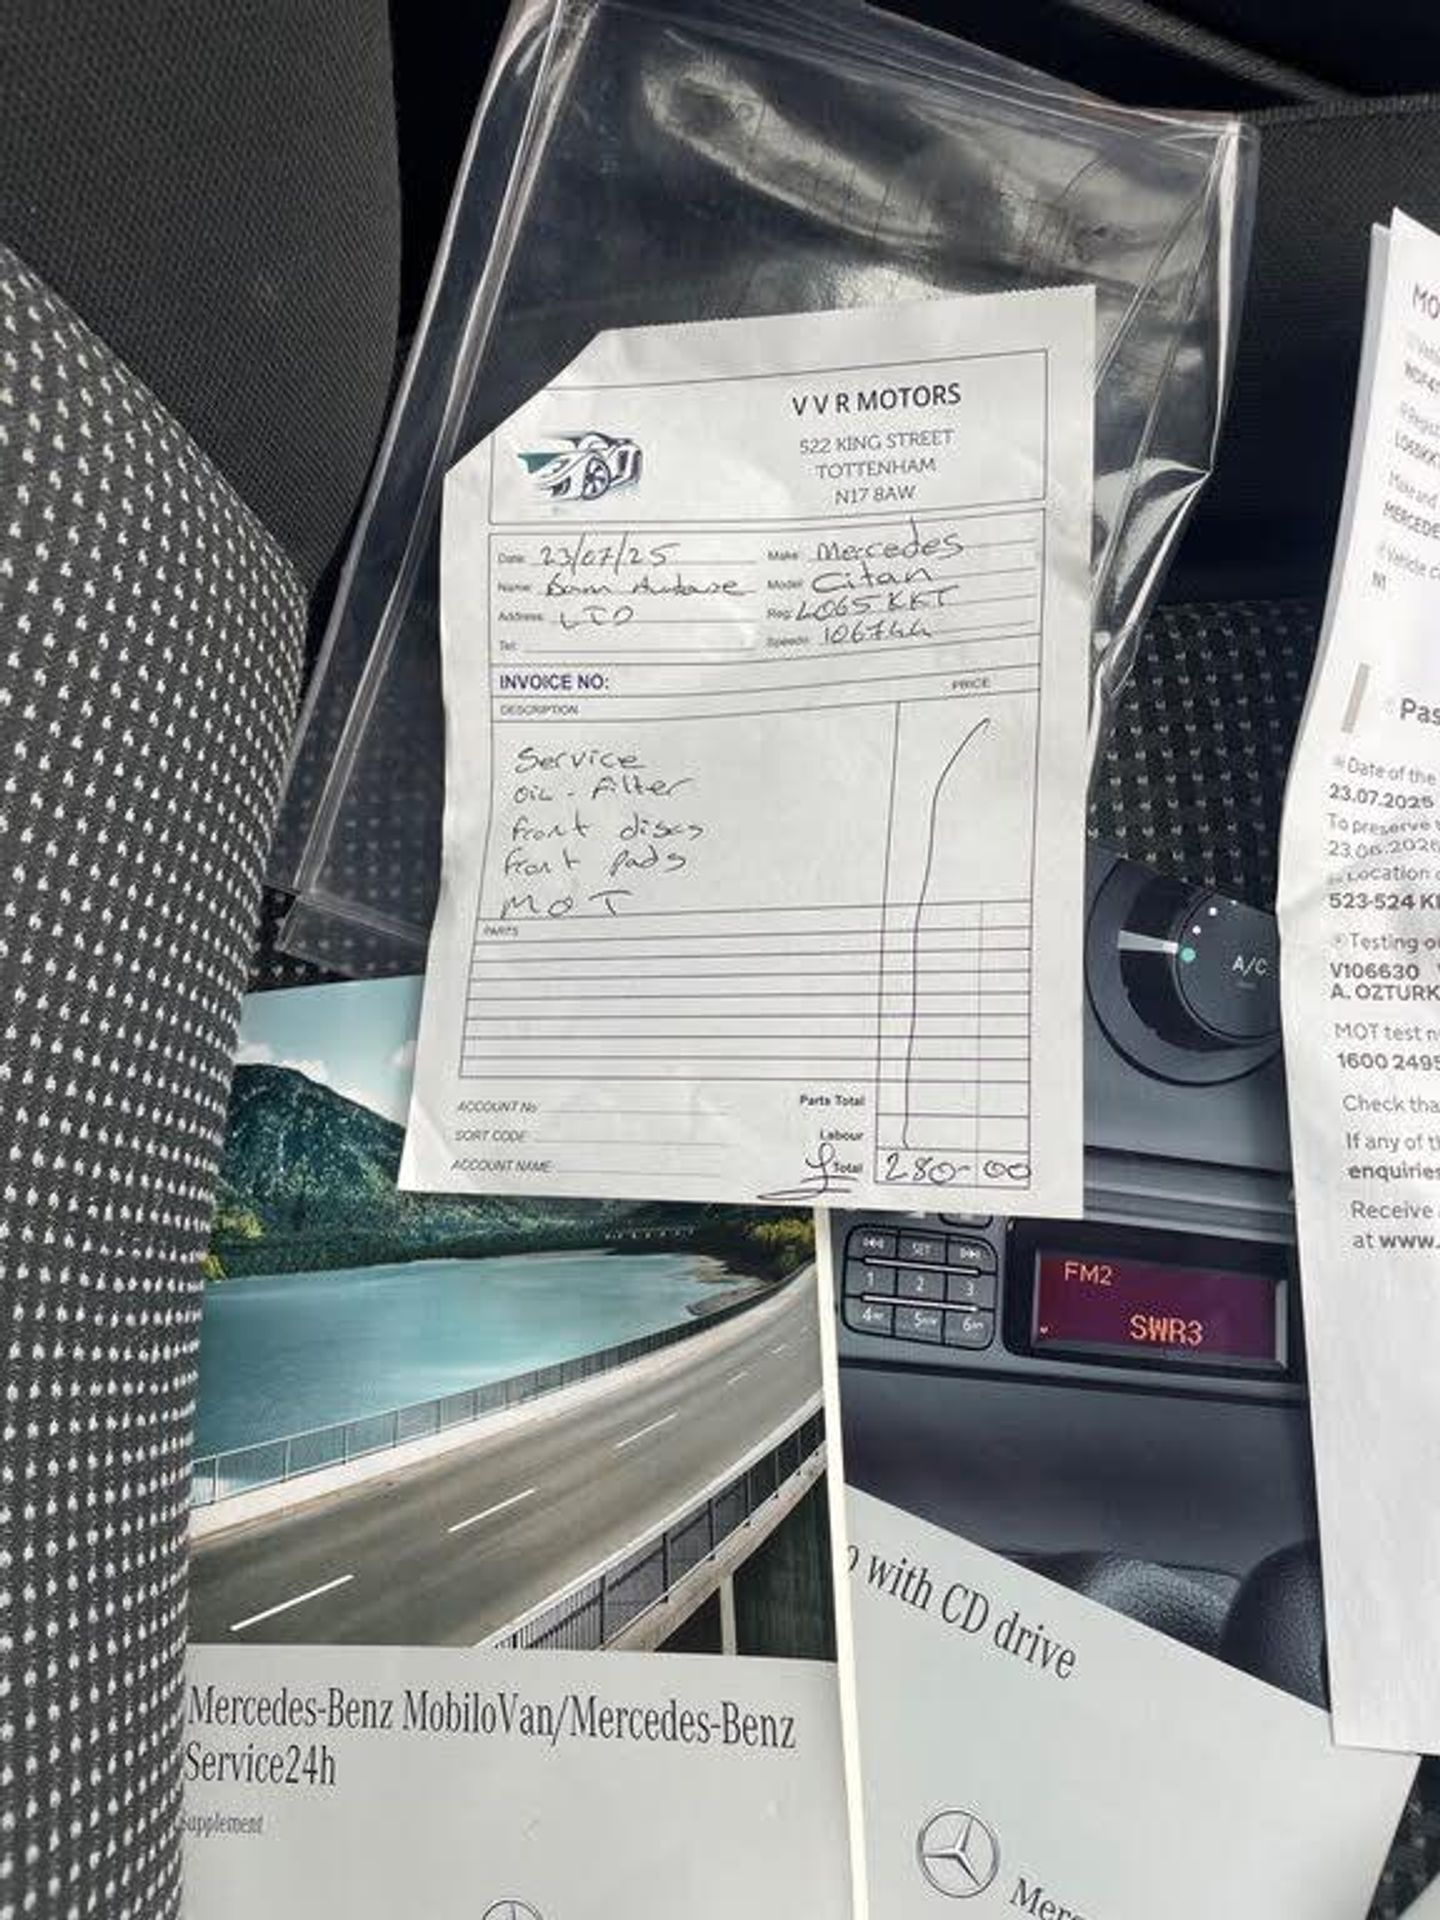 V V R MOTORS
522 KING STREET
TOTTENHAM
N17 8AW
Date: 23/07/25
Name:
Address: LTD
Tel:
Make: Mercedes
Model: Citan
Reg: LO65 KKT
Speedo: 106744
INVOICE NO:
DESCRIPTION
PRICE
Service
oil - Filter
front discs
front pads
MOT
PARTS
ACCOUNT No
SORT CODE
ACCOUNT NAME
Parts Total
Labour
£ Total 280-00
MO
MERCEDE
N1
Pas
Date of the
23.07.2025
To preserve
23.06.2026
Location
523-524 KI
Testing o
V106630
A. OZTURK
MOT test n
1600 2495
Check tha
If any of t
enquiries
Receive
at www.
A/C
SET
1 2 3
4 5 6
FM2
SWR3
with CD drive
Mercedes-Benz MobiloVan/Mercedes-Benz
Service24h
Supplement
Merc